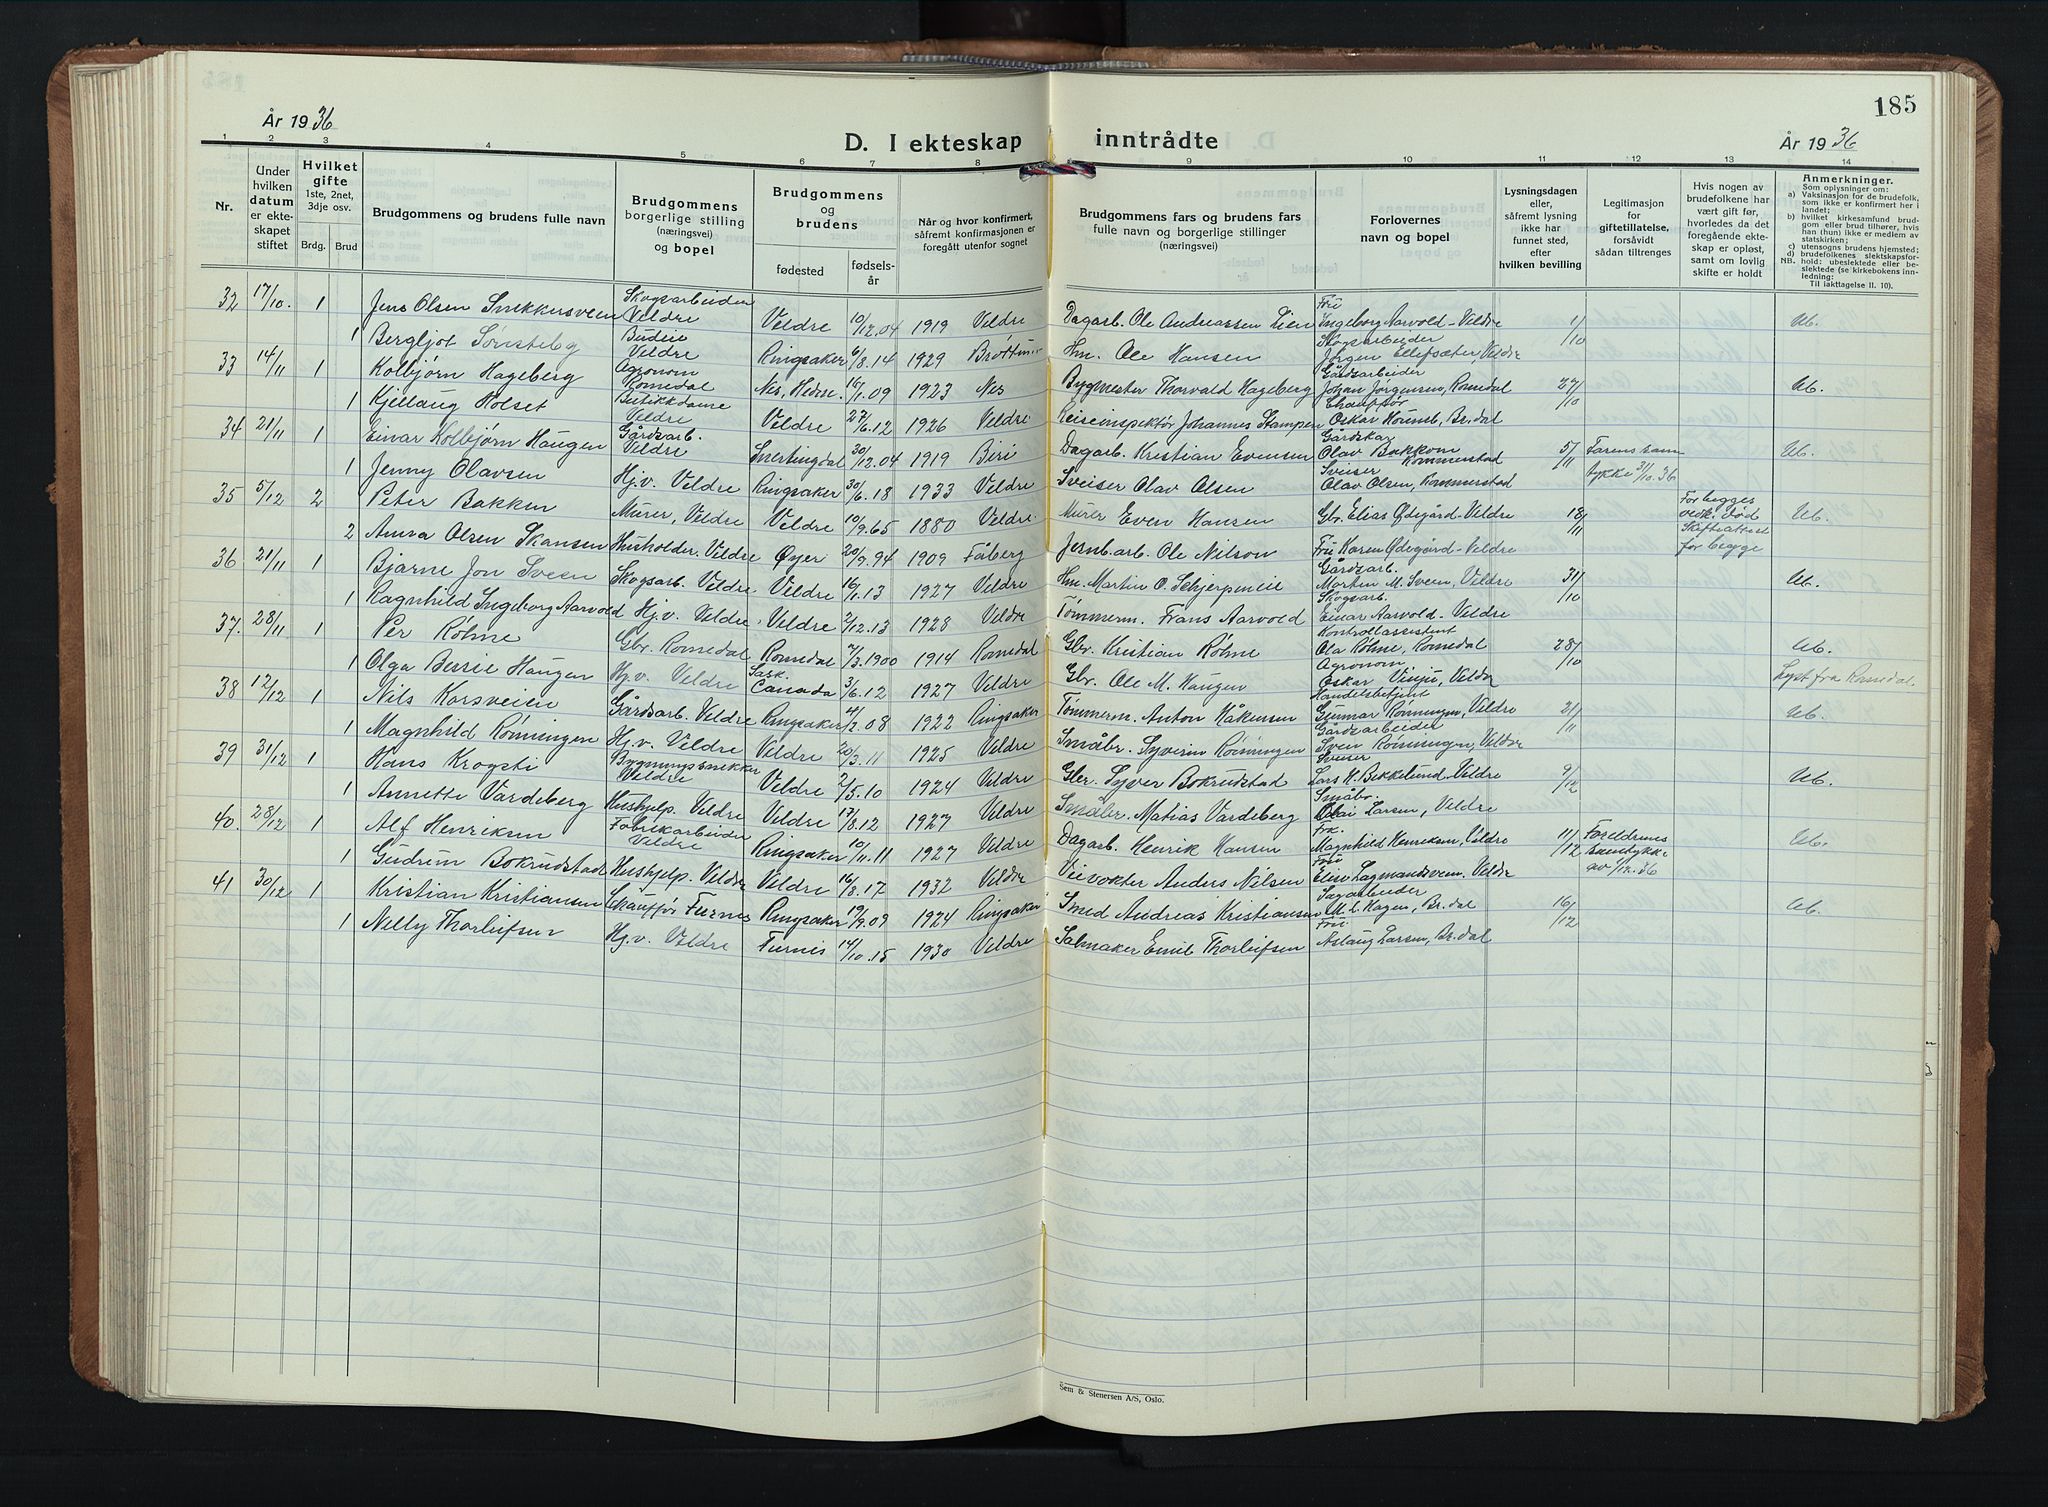 185
År 1936
D. I ekteskap inntrådte
År 1936
1 2 3 4 5 6 7 8 9 10 11 12 13 14
Nr.
Under
hvilken
datum
er ekte-
skapet
stiftet
Hvilket
gifte
1ste, 2net,
3dje osv.
Brdg. Brud
Brudgommens og brudens fulle navn
Brudgommens
borgerlige stilling
(næringsvei)
og bopel
Brudgommens
og
brudens
fødested
fødsels-
år
Når og hvor konfirmert,
såfremt konfirmasjonen er
foregått utenfor sognet
Brudgommens fars og brudens fars
fulle navn og borgerlige stillinger
(næringsvei)
Forlovernes
navn og bopel
Lysningsdagen
eller,
såfremt lysning
ikke har
funnet sted,
efter
hvilken bevilling
Legitimasjon
for
giftetillatelse,
forsåvidt
sådan tiltrenges
Hvis nogen av
brudefolkene har
vært gift før,
hvorledes da det
foregående ekte-
skap er opløst,
samt om lovlig
skifte er holdt
Anmerkninger.
Som oplysninger om:
a) Vaksinasjon for de brudefolk,
som ikke er konfirmert her i
landet;
b) hvilket kirkesamfund brud-
gom eller brud tilhører, hvis
han (hun) ikke er medlem av
statskirken;
c) utensogns brudens hjemsted:
d) brudefolkenes slektskapsfor-
NB. hold: ubeslektede eller be-
slektede (se kirkebokens inn-
ledning:
Til iakttagelse II. 10).
32 17/10. 1 Jens Olsen Snekkersveen Skogsarbeider Veldre Veldre 10/12.04 1919 Veldre Dagarb. Ole Andreassen Lien Fru Ingeborg Aarvold - Veldre 1/10 Ub.
1 Bergljot Sønsteby Budeie Veldre Ringsaker 6/8.14 1929 Brøttum Hm. Ole Hansen Skogsarbeider Jørgen Ellefsæter, Veldre
33 14/11 1 Kolbjørn Hageberg Agronom Romedal Nes, Hedm. 16/1.09 1923 Nes Bygmester Thorvald Hageberg Gårdsarbeider Johan Jørgensen, Romedal 27/10 Ub.
1 Kjellaug Holset Butikkdame Veldre Veldre 27/6.12 1926 Veldre Reiseinspektør Johannes Stampen Chauffør Oskar Br.dal
34 21/11 1 Einar Kolbjørn Haugen Gårdsarb. Veldre Snertingdal 30/12.04 1919 Biri Dagarb. Kristian Evensen Gårdskar Olav Bakken Kommerstad 5/11 Farens sam Ub.
1 Jenny Olavsen Hj.v. Veldre Ringsaker 30/6.18 1933 Veldre Sveiser Olav Olsen Sveiser Olav Olsen, Kommerstad tykke 31/10.36
35 5/12 2 Peter Bakken Murer, Veldre Veldre 10/9.65 1880 Veldre Murer Even Hansen Gbr. Elias Ødegård - Veldre 18/11 For begges vedk. død Ub.
2 Anna Olsen Skansen Husholder. Veldre Øyer 20/9.94 1909 Fåberg Jernb.arb. Ole Nilson Fru Karen Ødegård - Veldre Skifteattest for begge
36 21/11 1 Bjarne Jon Sveen Skogsarb. Veldre Veldre 16/1.13 1927 Veldre Hm. Martin O. Schjerpeneie Gårdsarb. Morten M. Sveen, Veldre 31/10 Ub.
1 Ragnhild Ingeborg Aarvold Hj.v. Veldre. Veldre 2/12.13 1928 Veldre Tømmerm. Frans Aarvold Skogsarb. Einar Aarvold. Veldre
37. 28/11 1 Per Røhne Gbr. Romedal Romedal 7/3.1900 1914 Romedal Gbr. Kristian Røhne Kontrollassistent Ola Røhne, Romedal 28/10 Ub.
1 Olga Bessie Haugen Hj.v. Veldre Sask. Canada 3/6.12 1927 Veldre Gbr. Ole M. Haugen Agronom Oskar Vinju, Veldre Lyst fra Romedal.
38 12/12 1 Nils Korsveien Gårdsarb. Veldre Ringsaker 4/2.08 1922 Ringsaker Tømmerm. Anton Håkensen Handelsbetjent Gunnar Rønningen, Veldre 21/11 Ub.
1 Magnhild Rønningen Hj.v. Veldre Veldre 20/3.11 1925 Veldre Småbr. Syverin Rønningen Gårdsarbeider Sven Rønningen, Veldre
39 31/12 1 Hans Krogsti Bygningssnekker Veldre Veldre 2/5.10 1924 Veldre Gbr. Syver Bokrudstad Sveiser Lars H. Bekkelund. Veldre 9/12 Ub.
1 Annette Vardeberg Hushjelp. Veldre Veldre 17/8.12 1927 Veldre Småbr. Matias Vardeberg Småbr. Olai Larsen, Veldre
40. 28/12 1 Alf Henriksen Fabrikarbeider Veldre Ringsaker 10/11.11 1927 Veldre Dagarb. Henrik Hansen Frk. Magnhild Henriksen, Veldre 11/12 Foreldrenes samtykke av 1/12.36 Ub.
1 Gudrun Bokrudstad Hushjelp. Veldre Veldre 16/8.17 1932 Veldre Veivokter Anders Nilsen Fru Eline Lagmandsveen. Veldre
41 30/12 1 Kristian Kristiansen Chauffør Furnes Ringsaker 19/9.09 1924 Ringsaker Smed Andreas Kristiansen Sagarbeider M. L. Hagen, Br.dal 16/12 Ub.
1 Nelly Thorleifsen Hj.v. Veldre Furnes 14/10.15 1930 Veldre Salmaker Emil Thorleifsen Fru Aslaug Larsen, Br.dal
Sem & Stenersen A/S, Oslo.